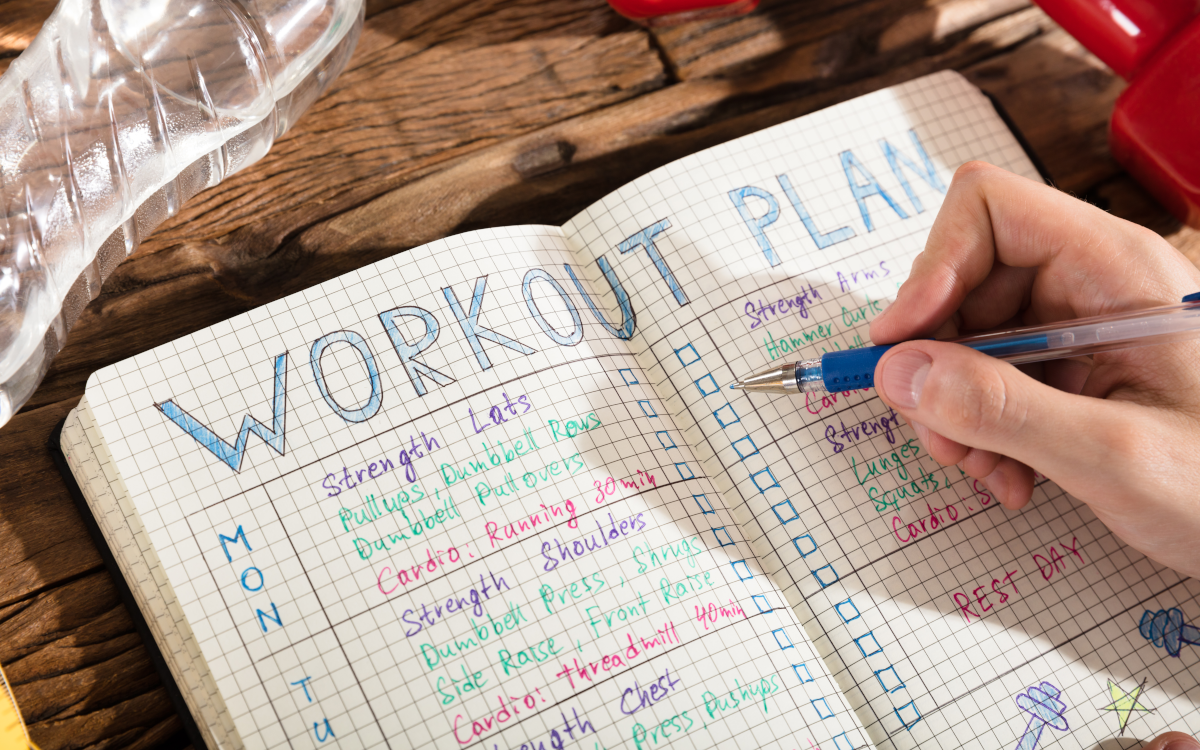 WORKOUT PLAN
MON
Strength Lats
Pullups, Dumbbell Rows
Dumbbell Pullovers
Cardio: Running 30min
TU
Strength Shoulders
Dumbbell Press, Shrugs
Side Raise, Front Raise
Cardio: threadmill 40min
Chest
Press Pushups
Strength Arms
Hammer
Lunges
Squats,
Cardio:
REST DAY